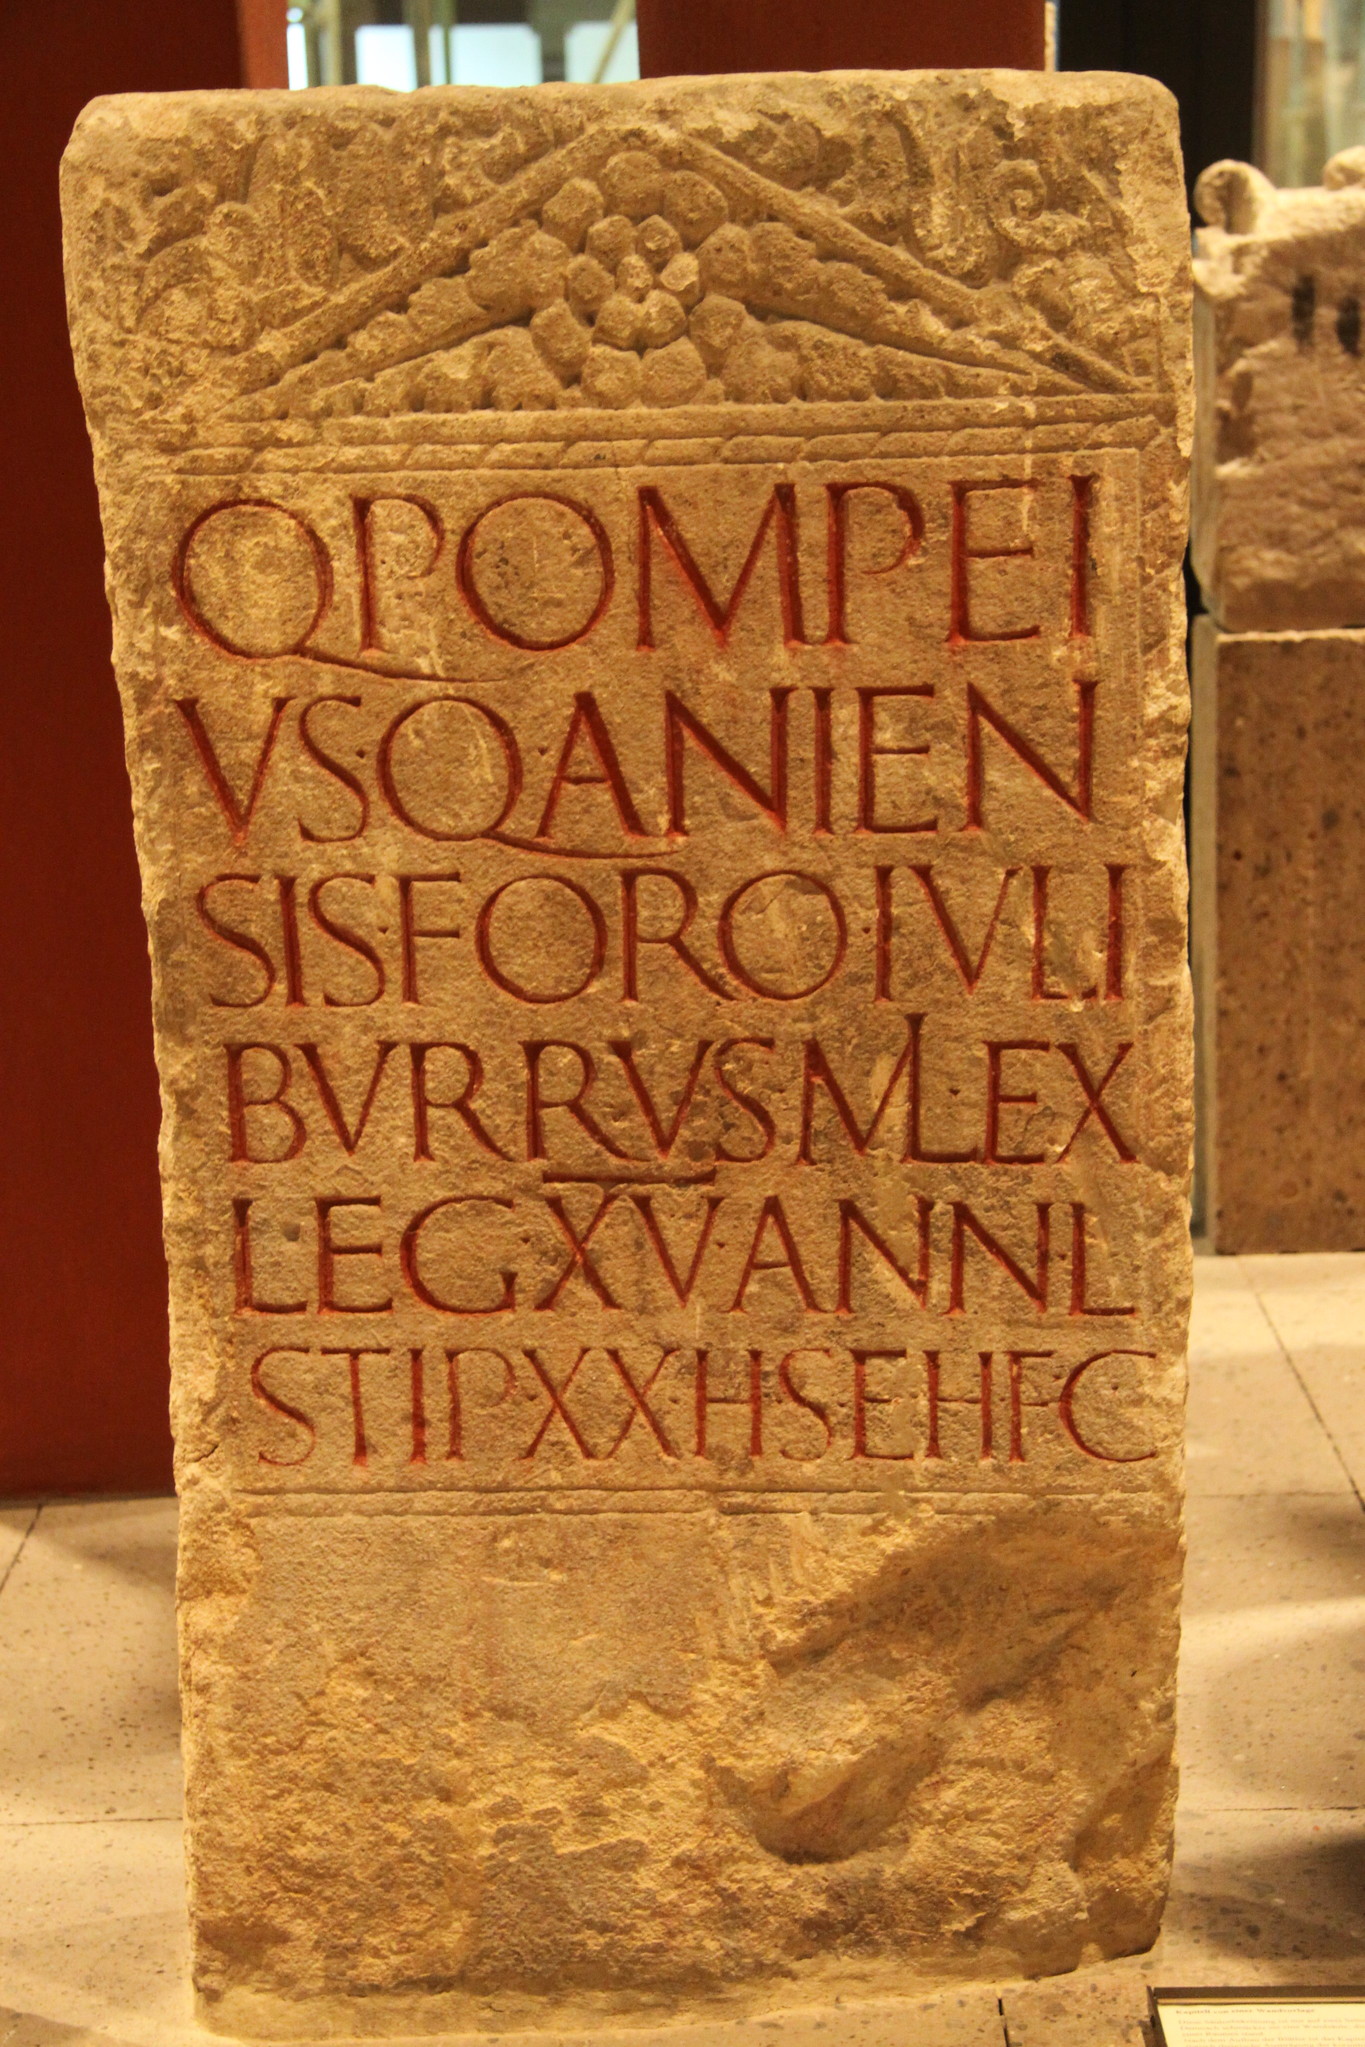 Q POMPEI
VS·Q·ANIEN
SIS·FORO·IVLI
BVRRVS MIL·EX
LEG·XV·ANN·L
STIP·XX·H·S·E·H·F·C